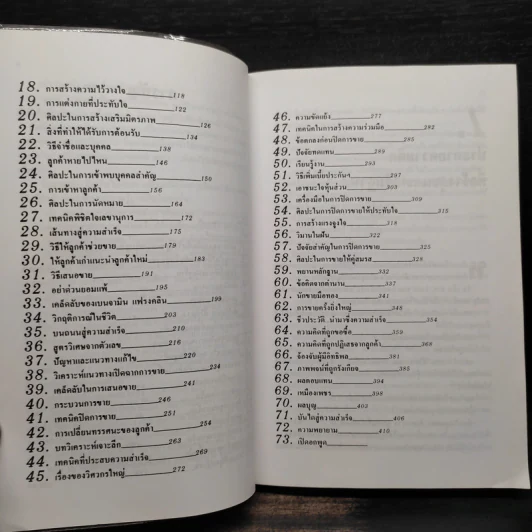 18. การสร้างความไว้วางใจ 118
19. การแต่งกายที่ประทับใจ 122
20. ศิลปะในการสร้างเสริมมิตรภาพ 126
21. สิ่งที่ทำให้ได้รับการต้อนรับ 134
22. วิธีจำชื่อและบุคคล 138
23. ลูกค้าหายไปไหน 146
24. ศิลปะในการเข้าพบบุคคลสำคัญ 150
25. การเข้าหาลูกค้า 156
26. ศิลปะในการนัดหมาย 164
27. เทคนิคพิชิตใจเลขานุการ 172
28. เส้นทางสู่ความสำเร็จ 175
29. วิธีให้ลูกค้าช่วยขาย 179
30. ให้ลูกค้าแนะนำลูกค้าใหม่ 183
31. วิธีเสนอขาย 191
32. อย่าด่วนยอมแพ้ 195
33. เคล็ดลับของเบนจามิน แฟรงคลิน 199
34. วิกฤติการณ์ในชีวิต 203
35. บนถนนสู่ความสำเร็จ 210
36. สูตรวิเศษจากตัวเลข 216
37. ปัญหาและแนวทางแก้ไข 220
38. วิเคราะห์แนวทางเปิดจากการขาย 234
39. เคล็ดลับในการเสนอขาย 241
40. กระบวนการขาย 246
41. เทคนิคปิดการขาย 251
42. การเปลี่ยนทรรศนะของลูกค้า 254
43. บทวิเคราะห์เจาะลึก 263
44. เทคนิคที่ประสบความสำเร็จ 269
45. เรื่องของวิศวกรใหญ่ 272
46. ความขัดแย้ง 277
47. เทคนิคในการสร้างความร่วมมือ 282
48. ข้อตกลงก่อนปิดการขาย 285
49. ปัจจัยทดแทน 289
50. เรียนรู้งาน 293
51. วิธีเพิ่มเบี้ยประกันฯ 297
52. เอาชนะใจหุ้นส่วน 303
53. เครื่องมือในการปิดการขาย 309
54. ศิลปะในการปิดการขายให้ประทับใจ 315
55. การสร้างแรงจูงใจ 319
56. วิมานในฝัน 322
57. ปัจจัยสำคัญในการปิดการขาย 325
58. ศิลปะในการขายให้คู่สมรส 328
59. พยานหลักฐาน 332
60. ข้อคิดจากตำนาน 337
61. นักขายมือทอง 341
62. การขายครั้งยิ่งใหญ่ 348
63. ชีวประวัติ..นำมาซึ่งความสำเร็จ 354
64. ความคิดที่ถูกขอซื้อ 359
65. ความคิดที่ถูกปฏิเสธจากลูกค้า 366
66. ข้องจับผู้มีอิทธิพล 381
67. ภาพพจน์ที่ถูกรังเกียจ 385
68. ผลตอบแทน 394
69. เหมืองเพชร 398
70. ผลบุญ 403
71. บันไดสู่ความสำเร็จ 406
72. ความพยายาม 410
73. เปิดอกพูด